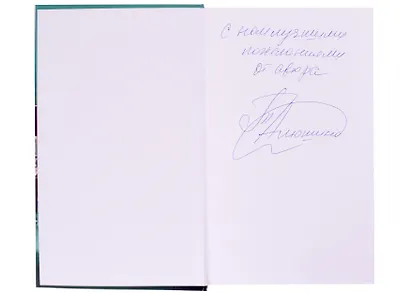 С наилучшими
пожеланиями
от автора